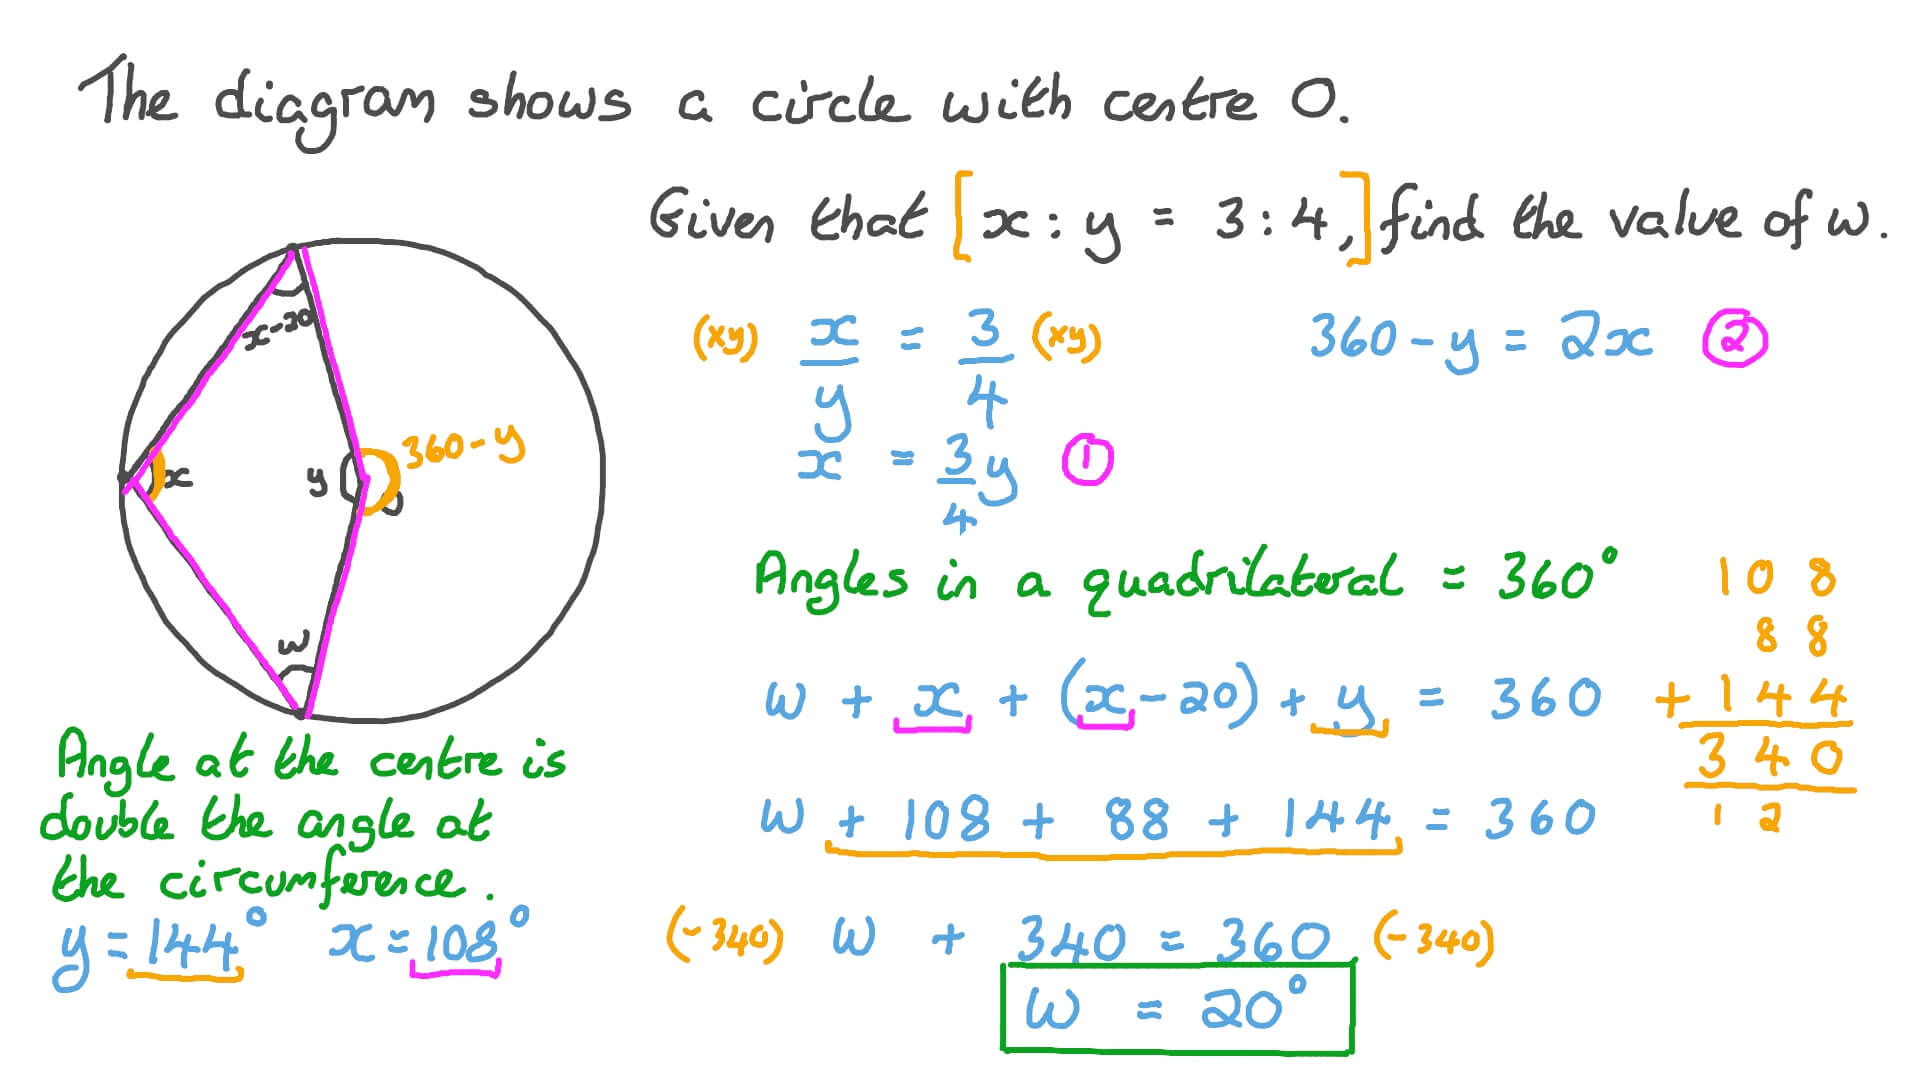 The diagram shows a circle with centre O.
Given that [x : y = 3 : 4,] find the value of w.
x-20
x
y
360-y
O
w
(xy) x/y = 3/4 (xy)
x = 3/4 y ①
360 - y = 2x ②
Angles in a quadrilateral = 360°
w + x + (x - 20) + y = 360
w + 108 + 88 + 144 = 360
(-340) w + 340 = 360 (-340)
w = 20°
108
88
+ 144
340
12
Angle at the centre is
double the angle at
the circumference.
y = 144° x = 108°